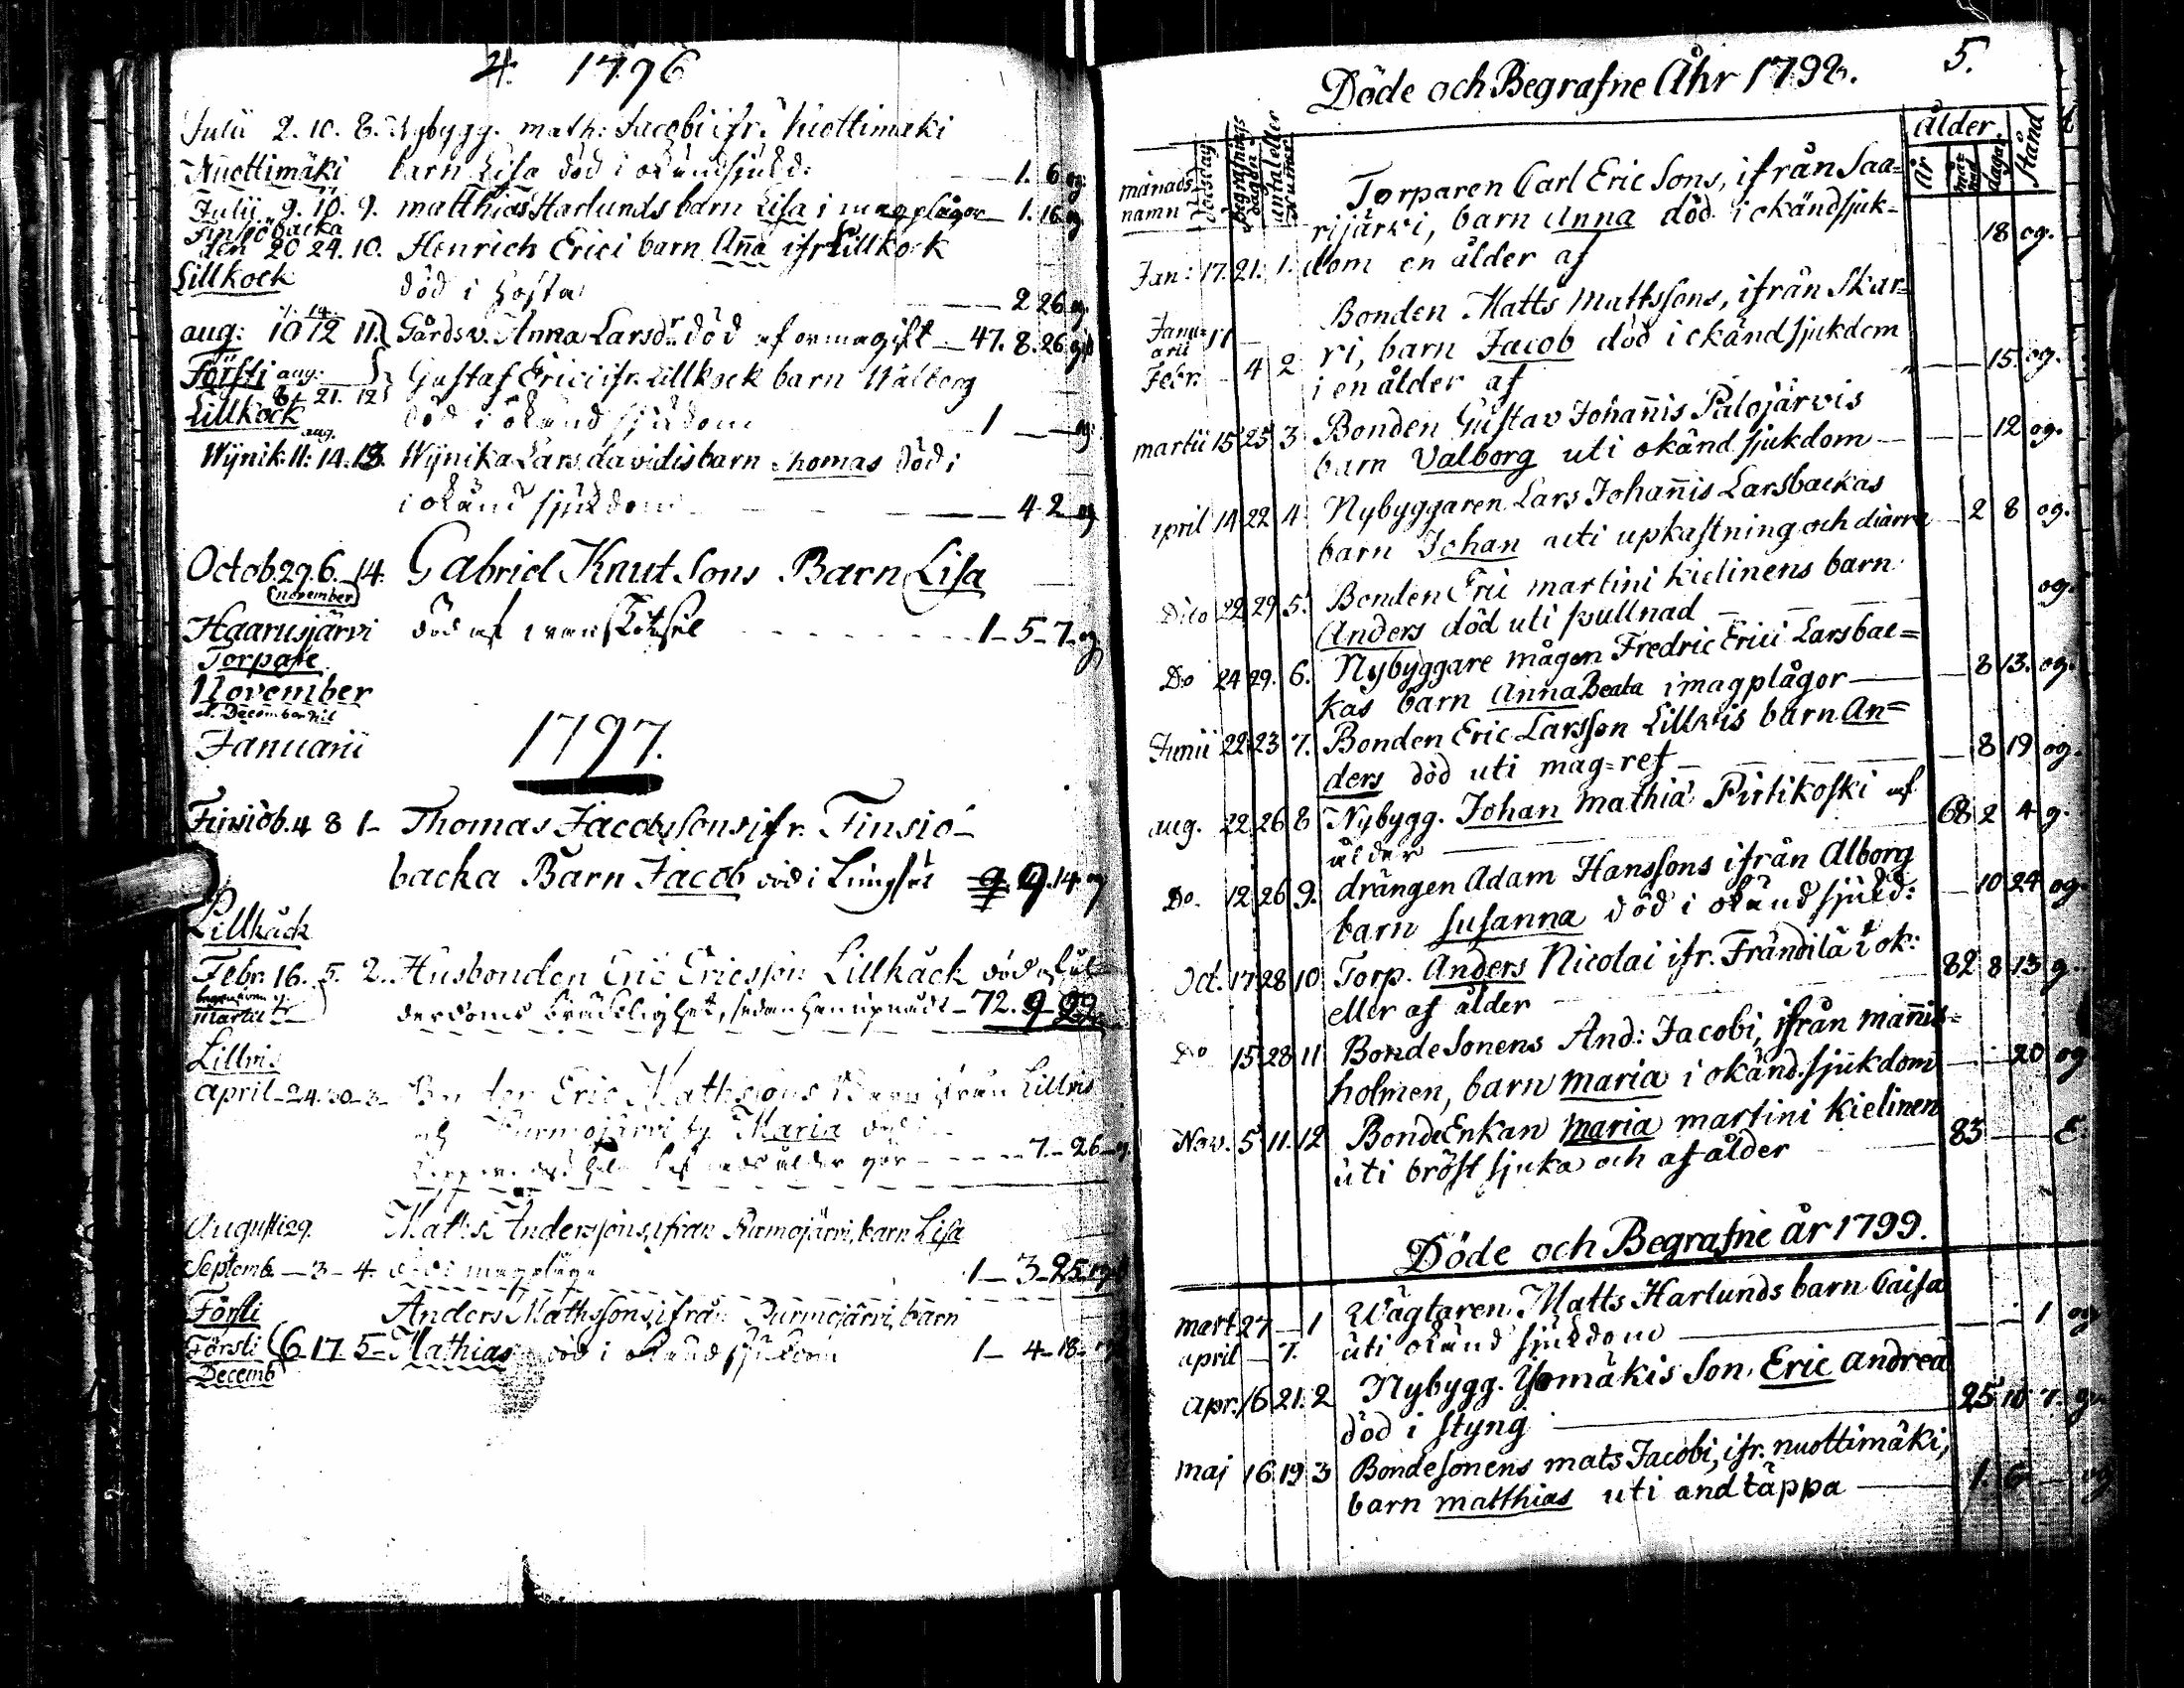 4. 1796
Julii 2. 10. 8. Nybygg. math: Jacobi ifr. Nuottimäki
Nuottimäki barn Lisa död i okänd sjukd: 1. 6 og.
Julii 9. 10. 9. matthias Harlunds barn Lisa i magplågor 1. 16 og
Finsiöbacka
den 20 24. 10. Henrich Erici barn Anna ifr Lillkock
Lillkock död i hosta 2 26 og.
aug: 10 12 11. Gårdsv. Anna Larsdr. död af ormagift 47. 8. 26 gt
Försti aug: Gustaf Erici ifr. Lillkock barn Walborg
21. 12
Lillkock död i okänd sjukdom 1 — — og.
aug.
Wÿnik. 11: 14. 13. Wÿnika Lars davidis barn Thomas död i
i okänd sjukdom 4 2 og
Octob. 29. 6. 14. Gabriel Knutsons Barn Lisa
(november)
Haarusjärvi död af 1 — 5 — 7 og
Torpare
November
et December nil
Januarii 1797.
Finsiöb. 4 8 1 Thomas Jacobssons ifr. Finsiö-
backa Barn Jacob död i Lungsot 9. 14 og
Lillkäck
Febr. 16. 5. 2. Husbonden Eric Ericsson Lillkäck död af ål-
begraven
Martii derdoms bräcklighet, sedan han upnådt 72. 9
Lillvis
april 24. 30. 3. Bonden Eric Mathssons Barn ifrån Lillvis
och Purmojärvi by Maria död i
7 — 26 og.
Augusti 29. Matts Anderssons, ifrån Purmojärvi, barn Lisa
Septemb. — 3 — 4. död i magplåga 1 — 3 — 25 og
Försti Anders Mathssons, ifrån Purmojärvi, barn
Försti 6 17 5 Mathias död i okänd sjukdom 1 — 4 — 18 og
Decemb
5.
Döde och Begrafne Åhr 1798.
månads namn dödsdag begrafnings dagen antal eller Numer ålder år måna dagar Stånd
Torparen Carl Eric Sons, ifrån Saa=
rijärvi, barn Anna död i okänd sjuk-
Jan: 17. 21. 1. dom en ålder af 18 og.
Bonden Matts Mattssons, ifrån Skar=
Janu-
arii 11 — ri, barn Jacob död i okänd sjukdom
Febr. — 4 2 i en ålder af — — 15. og.
martii 15 25 3 Bonden Gustav Johannis Palojärvis
barn Valborg uti okänd sjukdom — — — 12 og.
april 14 22 4 Nybyggaren Lars Johannis Larsbackas
barn Johan uti upkastning och diarré — 2 8 og.
Dito 22 29 5. Bonden Eric martini Kielinens barn
Anders död uti svullnad — — — og.
Do 24 29. 6. Nybyggare mågen Fredric Erici Larsbac=
kas barn Anna Beata i magplågor — — 8 13. og.
Junii 22 23 7. Bonden Eric Larsson Lillvis barn An=
ders död uti mag=ref — — 8 19 og.
aug. 22 26 8 Nybygg. Johan Mathiæ Pirtikoski af
ålder 68 2 4 g.
Do. 12 26 9. drängen Adam Hanssons ifrån Alborg
barn Susanna död i okänd sjukd: — 10 24 og.
Oct. 17 28 10 Torp. Anders Nicolai ifr. Frändilä i ok:
eller af ålder 82 8 13 g.
Do 15 28 11 Bonde Sonens And: Jacobi, ifrån mannis=
holmen, barn Maria i okänd sjukdom — — 20 og
Nov. 5 11. 12 Bonde Enkan Maria martini Kielinen
uti bröst sjuka och af ålder 83 — — E.
Döde och Begrafne år 1799.
Mart 27 — 1 Wägtaren Matts Harlunds barn Caisa
april — 7. uti okänd sjukdom — — 1 og
apr. 16 21. 2 Nybygg. Yömäkis Son, Eric Andreæ
död i styng 25 10 7. g.
maj 16 19 3 Bondesonens mats Jacobi, ifr. nuottimäki,
barn matthias uti andtäppa 1. 6 — og